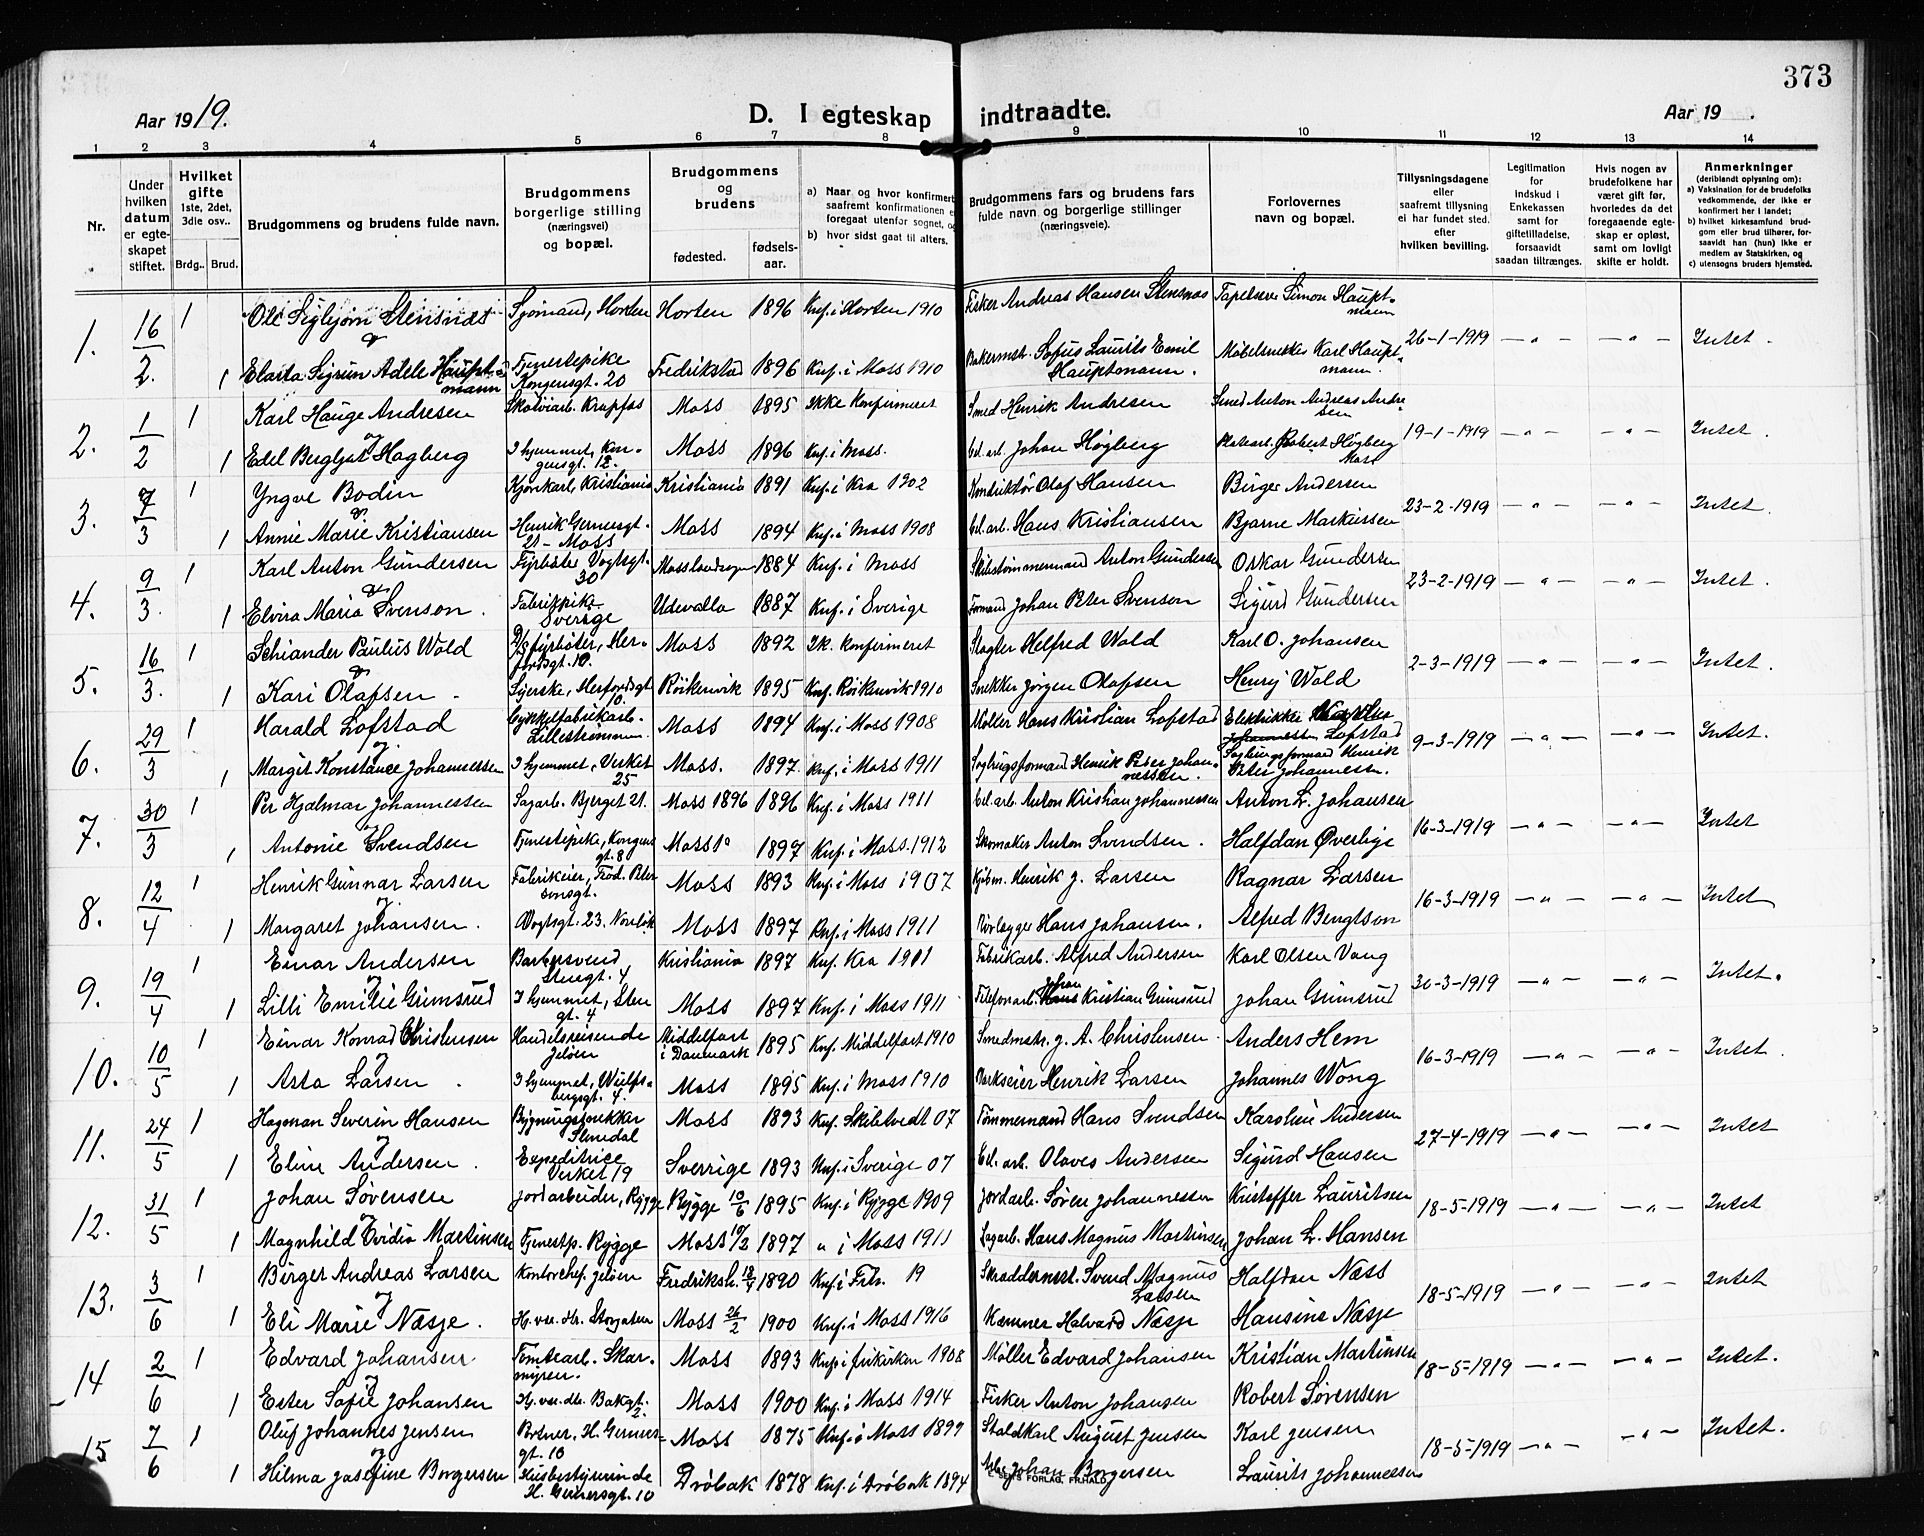 373
Aar 1919.
D. I egteskap indtraadte.
Aar 19 .
1 2 3 4 5 6 7 8 9 10 11 12 13 14
Nr.
Under hvilken datum er egteskapet stiftet.
Hvilket gifte 1ste, 2det, 3die osv..
Brdg.. Brud.
Brudgommens og brudens fulde navn.
Brudgommens borgerlige stilling (næringsvei) og bopæl.
Brudgommens og brudens
fødested. fødselsaar.
a) Naar og hvor konfirmert
saafremt konfirmationen e
foregaat utenfor sognet, og
b) hvor sidst gaat til alters.
Brudgommens fars og brudens fars fulde navn og borgerlige stillinger (næringsveie).
Forlovernes navn og bopæl.
Tillysningsdagene eller saafremt tillysning ei har fundet sted. efter hvilken bevilling.
Legitimation for indskud i Enkekassen samt for giftetilladelse, forsaavidt saadan tiltrænges.
Hvis nogen av brudefolkene har været gift før, hvorledes da det foregaaende egteskap er opløst, samt om lovligt skifte er holdt.
Anmerkninger (deriblandt oplysning om):
a) Vaksination for de brudefolks vedkommende, der ikke er konfirmert her i landet;
b) hvilket kirkesamfund brudgom eller brud tilhører, forsaavidt han (hun) ikke er medlem av Statskirken, og
c) utensogns bruders hjemsted.
1. 16/2. 1 Ole Sigbjørn Stensnæs Sjømand, Horten Horten 1896 Knf. i Horten 1910 Fisker Andreas Hansen Stensnæs Tapetserer Simon Hauptmann 26-1-1919 — „ — — „ — Intet.
og
1 Sigrun Adele Hauptmann Tjenestepike Kongensgt. 20 Fredrikstad 1896 Knf. i Moss 1910 Bakermstr. Sofus Laurits Emil Hauptmann. Møbelsnekker Karl Hauptmann.
2. 1/2 1 Karl Hauge Andresen Moss 1895 Ikke konfirmeret Smed Henrik Andresen Smed Anton Andreas Andresen 19-1-1919 — „ — — „ — Intet.
og
1 Edel Bergljot Høgberg I hjemmet, Kongensgt. 12. Moss 1896 Knf. i Moss. Johan Høgberg Robert Høgberg Moss
3. 7/3 1 Yngve Bodin Kristiania Kristiania 1891 Knf. i Kra 1902 Konduktør Olaf Hansen Birger Andersen 23-2-1919 — „ — — „ — Intet.
og
1 Annie Marie Kristiansen Henrik Gernersgt. 21 - Moss Moss 1894 Knf. i Moss 1908 Cel. arb. Hans Kristiansen Bjarne Markussen
4. 9/3. 1 Karl Anton Gundersen Fyrbøter Vogtsgt. 30 Moss landsogn 1884 Knf. i Moss Skibstømmermand Anton Gundersen Oskar Gundersen 23-2-1919 — „ — — „ — Intet.
og
1 Elvira Maria Svenson. Fabrikpike Sverige Udevalla 1887 Knf. i Sverige Formand Johan Peter Svenson Sigurd Gundersen
5. 16/3. 1 Schiander Paulus Wold D/s fyrbøter, Herfordsgt. 10. Moss 1892 Ik. konfirmeret Slagter Helfred Wold Karl O. Johansen 2-3-1919 — „ — — „ — Intet.
og
1 Kari Olafsen. Syerske, Herfordsgt 10. Røikenvik 1895 Knf. Røikenvik 1910 Snekker Jørgen Olafsen Henry Wold
6. 29/3 1 Harald Løfstad Cykkelfabrikarb. Lillestrømmen. Moss 1894 Knf. i Moss 1908 Møller Hans Kristian Løfstad Elektrikker Løfstad 9-3-1919 — „ — — „ — Intet.
og
1 Margit Konstance Johannessen I hjemmet, Verket 25 Moss. 1897. Knf. i Moss 1911 Sagbrugsformand Henrik Peter Johannessen. Sagbrugsformand Henrik Peter Johannessen.
7. 30/3 1 Per Hjalmar Johannessen Sagarb. Bjerget 21. Moss 1896 1896 Knf. i Moss 1911 Cel. arb. Anton Kristian Johannessen Anton L. Johansen 16-3-1919 — „ — — „ — Intet
og
1 Antonie Svendsen Tjenestepike, Kongensgt. 8 Moss 1897 Knf. i Moss. 1912 Skomaker Anton Svendsen. Halfdan Øverbye
8. 12/4 1 Henrik Gunnar Larsen Fabrikeier, Moss 1893 Knf. i Moss 1907 Kjøbm. Henrik J. Larsen Ragnar Larsen 16-3-1919 — „ — — „ — Intet
og
1 Margaret Johansen. Vogtsgt. 23. Moss 1897 Knf. i Moss 1911 Rørlægger Hans Johansen. Alfred Bengtson
9. 19/4 1 Einar Andersen Barbersvend Stengt. 4 Kristiania 1897 Knf. Kra 1911 Fabrikarb. Alfred Andersen Karl Olsen Vang 30-3-1919 — „ — — „ — Intet.
og
1 Lilli Emilie Grimsrud I hjemmet, Stengt. 4 Moss 1897 Knf. i Moss 1911 Telefonarb. Johan Kristian Grimsrud Johan Grimsrud
10. 10/5 1 Einar Konrad Christensen Handelsreisende Jeløen Middelfart i Danmark 1895 Knf. Middelfart 1910 Smedmstr. J. A. Christensen. Anders Hem 16-3-1919 — „ — — „ — Intet.
og
1 Asta Larsen. I hjemmet, Wulfsbergsgt. 4. Moss 1895 Knf. i Moss 1910 Verkseier Henrik Larsen Johannes Wong
11. 24/5 1 Hagman Severin Hansen Bygningssnekker Moss 1893 Knf. Skibtvedt 07 Tømmermand Hans Svendsen Karoline Andersen 27-4-1919 — „ — — „ — Intet
og
1 Eline Andersen. Expeditrice Verket 19 Sverrige 1893 Knf. i Sverige 07 Cel. arb. Olaves Andersen Sigurd Hansen
12. 31/5 1 Johan Sørensen Jordarbeider, Rygge Rygge 10/6 1895 Knf. i Rygge 1909 Jordarb. Søren Johannessen Kristoffer Lauritsen 18-5-1919 — „ — — „ — Intet
og
1 Magnhild Ovidia Martinsen Tjenestp. Rygge Moss 1897 „ i Moss 1911 Sagarb. Hans Magnus Martinsen Johan L. Hansen
13. 3/6 1 Birger Andreas Larsen Kontorchef. Jeløen Fredriksh. 1890 Knf. i Frh. 19 Skreddermest. Svend Magnus Larsen Halfdan Næss 18-5-1919 — „ — — „ — Intet
og
1 Eli Marie Næsje. Storgaten Moss 26/2 1900 Knf. i Moss 1916 Kæmner Halvard Næsje Hansine Næsje
14 2/6 1 Edvard Johansen Tomtearb. Skarmyren. Moss 1893 Knf. i frikirken 1908 Møller Edvard Johansen Kristian Martinsen 18-5-1919 — „ — — „ — Intet.
og
1 Ester Sofie Johansen Hj. vær. dtr. Bakgt. 2. Moss 1900 Knf. i Moss 1914 Fisker Anton Johansen Robert Sørensen
15 7/6 1 Oluf Johannes Jensen Portner, H. Gernersgt. 10 Moss 1875 Knf. i Moss 1899 Staldkarl August Jensen Karl Jensen 18-5-1919 — „ — — „ — Intet.
og
1 Hilma Josefine Borgersen Husbestyrerinde H. Gernersgt. 10 Drøbak 1878 Knf. i Drøbak 1894 Arb. Johan Borgersen Laurits Johannessen
FORLAG, FR.HALD